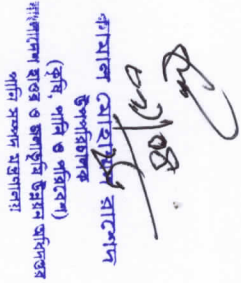 কামাল মোহাম্মদ রাশেদ
উপপরিচালক
(কৃষি, পানি ও পরিবেশ)
বাংলাদেশ হাওর ও জলাভূমি উন্নয়ন অধিদপ্তর
পানি সম্পদ মন্ত্রণালয়